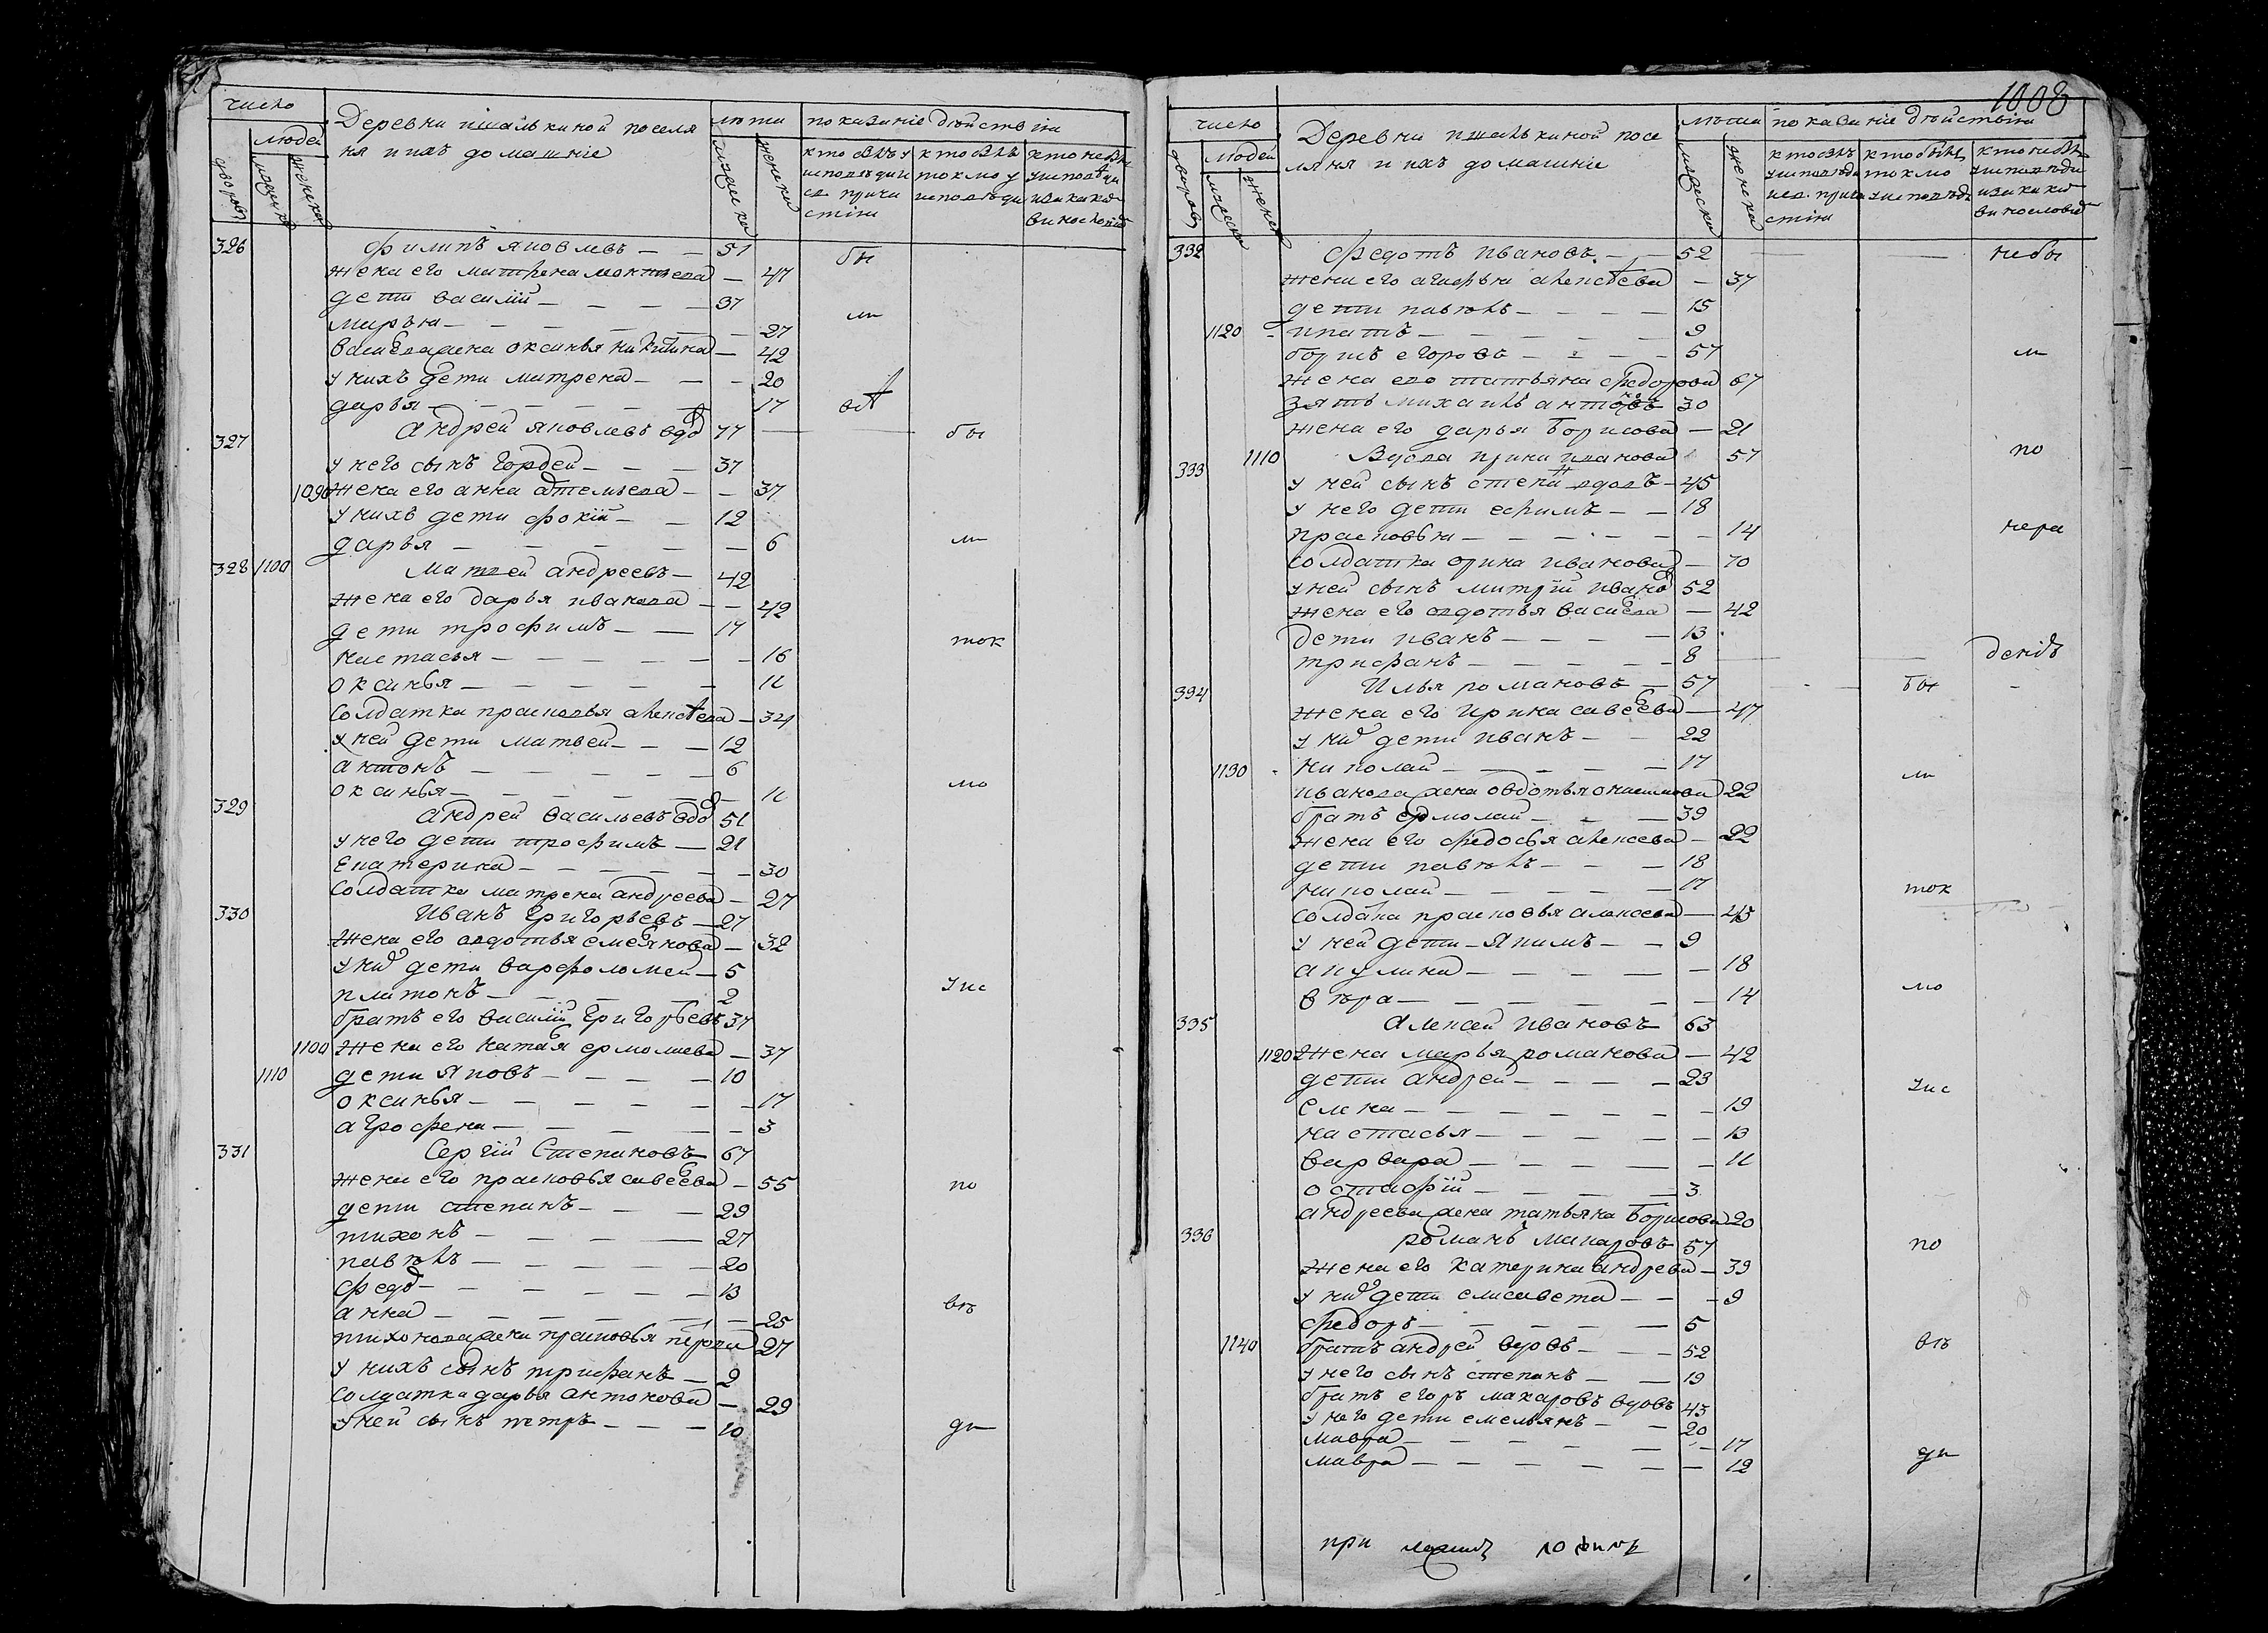 число
Деревни пшалкиной поселя
лѣта
показаніе дѣйствіи
людей
ня и ихъ домашніе
дворовъ
мужска
женска
мужеска
женска
кто былъ у
исповѣди и
св. прича
стіи
кто былъ
токмо у
исповѣди
кто не былъ
у исповѣди
и за какой
виносло
326 Филипъ яковлевъ — — 51 бы
жена его матрена — 47
дети василїй — — — — 37
марья — — — — — — 27 ли
васильева жена оксинья никитина — 42
у нихъ дети матрена — — — 20
дарья — — — — — 17 всѣ
327 андрей яковлевъ вдо 77 бы
у него сынъ гордей — — — 37
1090 жена его анна артемьева — — 37
у нихъ дети фокїй — — 12
дарья — — — — — — 6 ли
328 1100 Матвей андреевъ — 42
жена его дарья иванова — — 42
дети трофимъ — — 17
настасья — — — — — — 16 ток
оксинья — — — — — 11
солдатка прасковья алексѣева — 34
у ней дети матвей — — — 12
антонъ — — — — — 6
оксинья — — — — — — 11 мо
329 андрей васильевъ вдо 51
у него дети трофимъ — 21
екатерина — — — — — — 30
солдатка матрена андреева — 27
330 Иванъ григорьевъ — 27
жена его авдотья емельянова — 32
у них дети варфоломей — 5
платонъ — — — — 2 у ис
братъ его василїй григорьевъ 37
1100 жена его наталья ермолаева — 37
1110 дети яковъ — — — — 10
оксинья — — — — — — 17
агрофена — — — — — — 3
331 Сергїй Степановъ — 67
жена его прасковья савельева — 55 по
дети степанъ — — — 29
тихонъ — — — — — 27
павелъ — — — — — 20
федо — — — — — — 13
анна — — — — — — 25 вѣ
тихонова жена прасковья петрова 27
у нихъ сынъ трифанъ — 2
солдатка дарья антонова — 29
у ней сынъ петръ — — — 10 ди
1008
число
Деревни пшалкиной посе
лѣта
показаніе дѣйствіи
людей
ляня и ихъ домашніе
дворовъ
мужеска
женска
мужеска
женска
кто былъ
у исповѣди
и св. прича
стіи
кто былъ
токмо
у исповѣди
кто не былъ
у исповѣди
и за какой
винословїе
332 Федотъ ивановъ — — 52 не бы
жена его агафья алексѣева — 37
дети павелъ — — — — 15
1120 ипатъ — — — — — 9
борисъ егоровъ — — — — 57 ли
жена его татьяна федорова 67
зять михаилъ антоновъ 30
жена его дарья борисова — 21
333 1110 Вдова ирина иванова 57 по
у ней сынъ степанъ вдовъ — 45
у него дети ефимъ — — 18
прасковья — — — — — — 14 нера
солдатка орина иванова — 70
у ней сынъ митрїй ивано 52
жена его авдотья васильева — 42
дети иванъ — — — — 13
трифанъ — — — — — 8
334 Илья романовъ — 57 бы
жена его ирина савельева — 47
у них дети иванъ — — 22
1130 николай — — — — — 17
иванова жена овдотья 22 ли
братъ ермолай — — — 39
жена его федосья алексеева — 22
дети павелъ — — — 18
николай — — — — — 17 ток
солдатка прасковья алексеева — 43
у ней дети — якимъ — — 9
акулина — — — — — 18
вѣра — — — — — — 14 мо
335 алексей ивановъ 63
1120 жена марья романова — 42
дети андрей — — — — 23 у ис
елена — — — — — — — 19
настасья — — — — — 13
варвара — — — — — 11
остафїй — — — — 3
андреева жена татьяна борисова 20
336 романъ макаровъ 57 по
жена его катерина андреева — 39
у них дети елисавета — — 9
федоръ — — — — — 5
1140 братъ андрей вдовъ — — — 52 вѣ
у него сынъ степанъ — — 19
братъ егоръ макаровъ вдовъ 43
у него дети емельянъ — — 20
мавра — — — — — — 17
мавра — — — — — — 12 ди
при